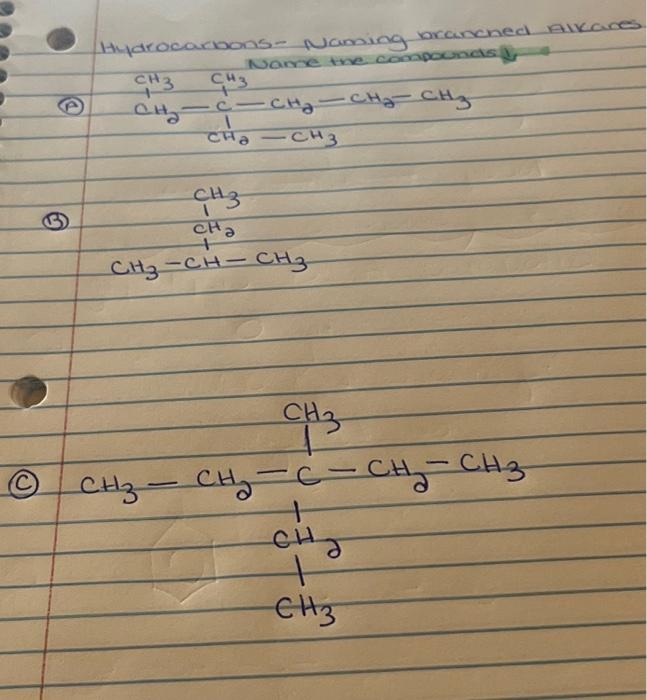 Hydrocarbons - Naming branched Alkanes
Name the compounds ↓
CH3 CH3
Ⓐ CH2 — C — CH2 — CH2 — CH3
CH2 — CH3
CH3
Ⓑ
CH2
CH3 — CH — CH3
CH3
Ⓒ CH3 — CH2 — C — CH2 — CH3
CH2
CH3